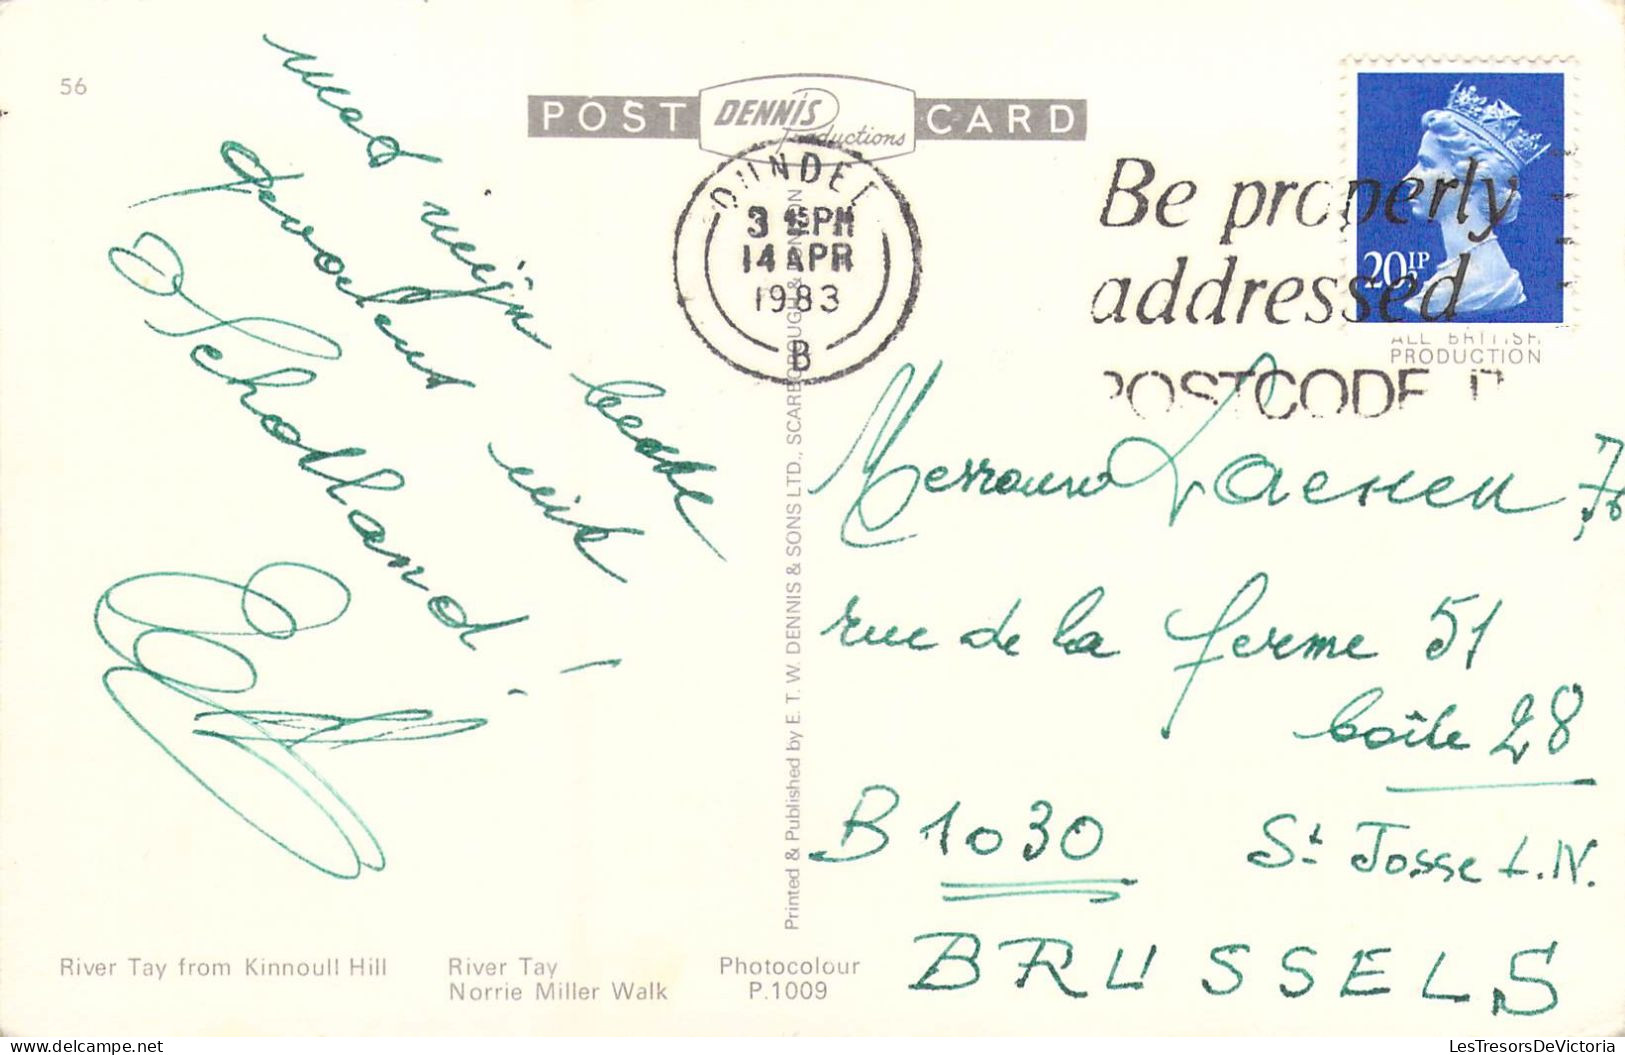 56
POST DENNIS Productions CARD
DUNDEE
3 15 PM
14 APR
1983
B
Be properly
addressed
POSTCODE IT
20½P
ALL BRITISH
PRODUCTION
met mijn beste
uit
Schotland!
Lacnen
rue de la ferme 51
boîte 28
B 1030 St Josse t.N.
BRUSSELS
Printed & Published by E. T. W. DENNIS & SONS LTD., SCARBOROUGH & LONDON
River Tay from Kinnoull Hill
River Tay
Norrie Miller Walk
Photocolour
P.1009
delcampe.net
LesTresorsDeVictoria